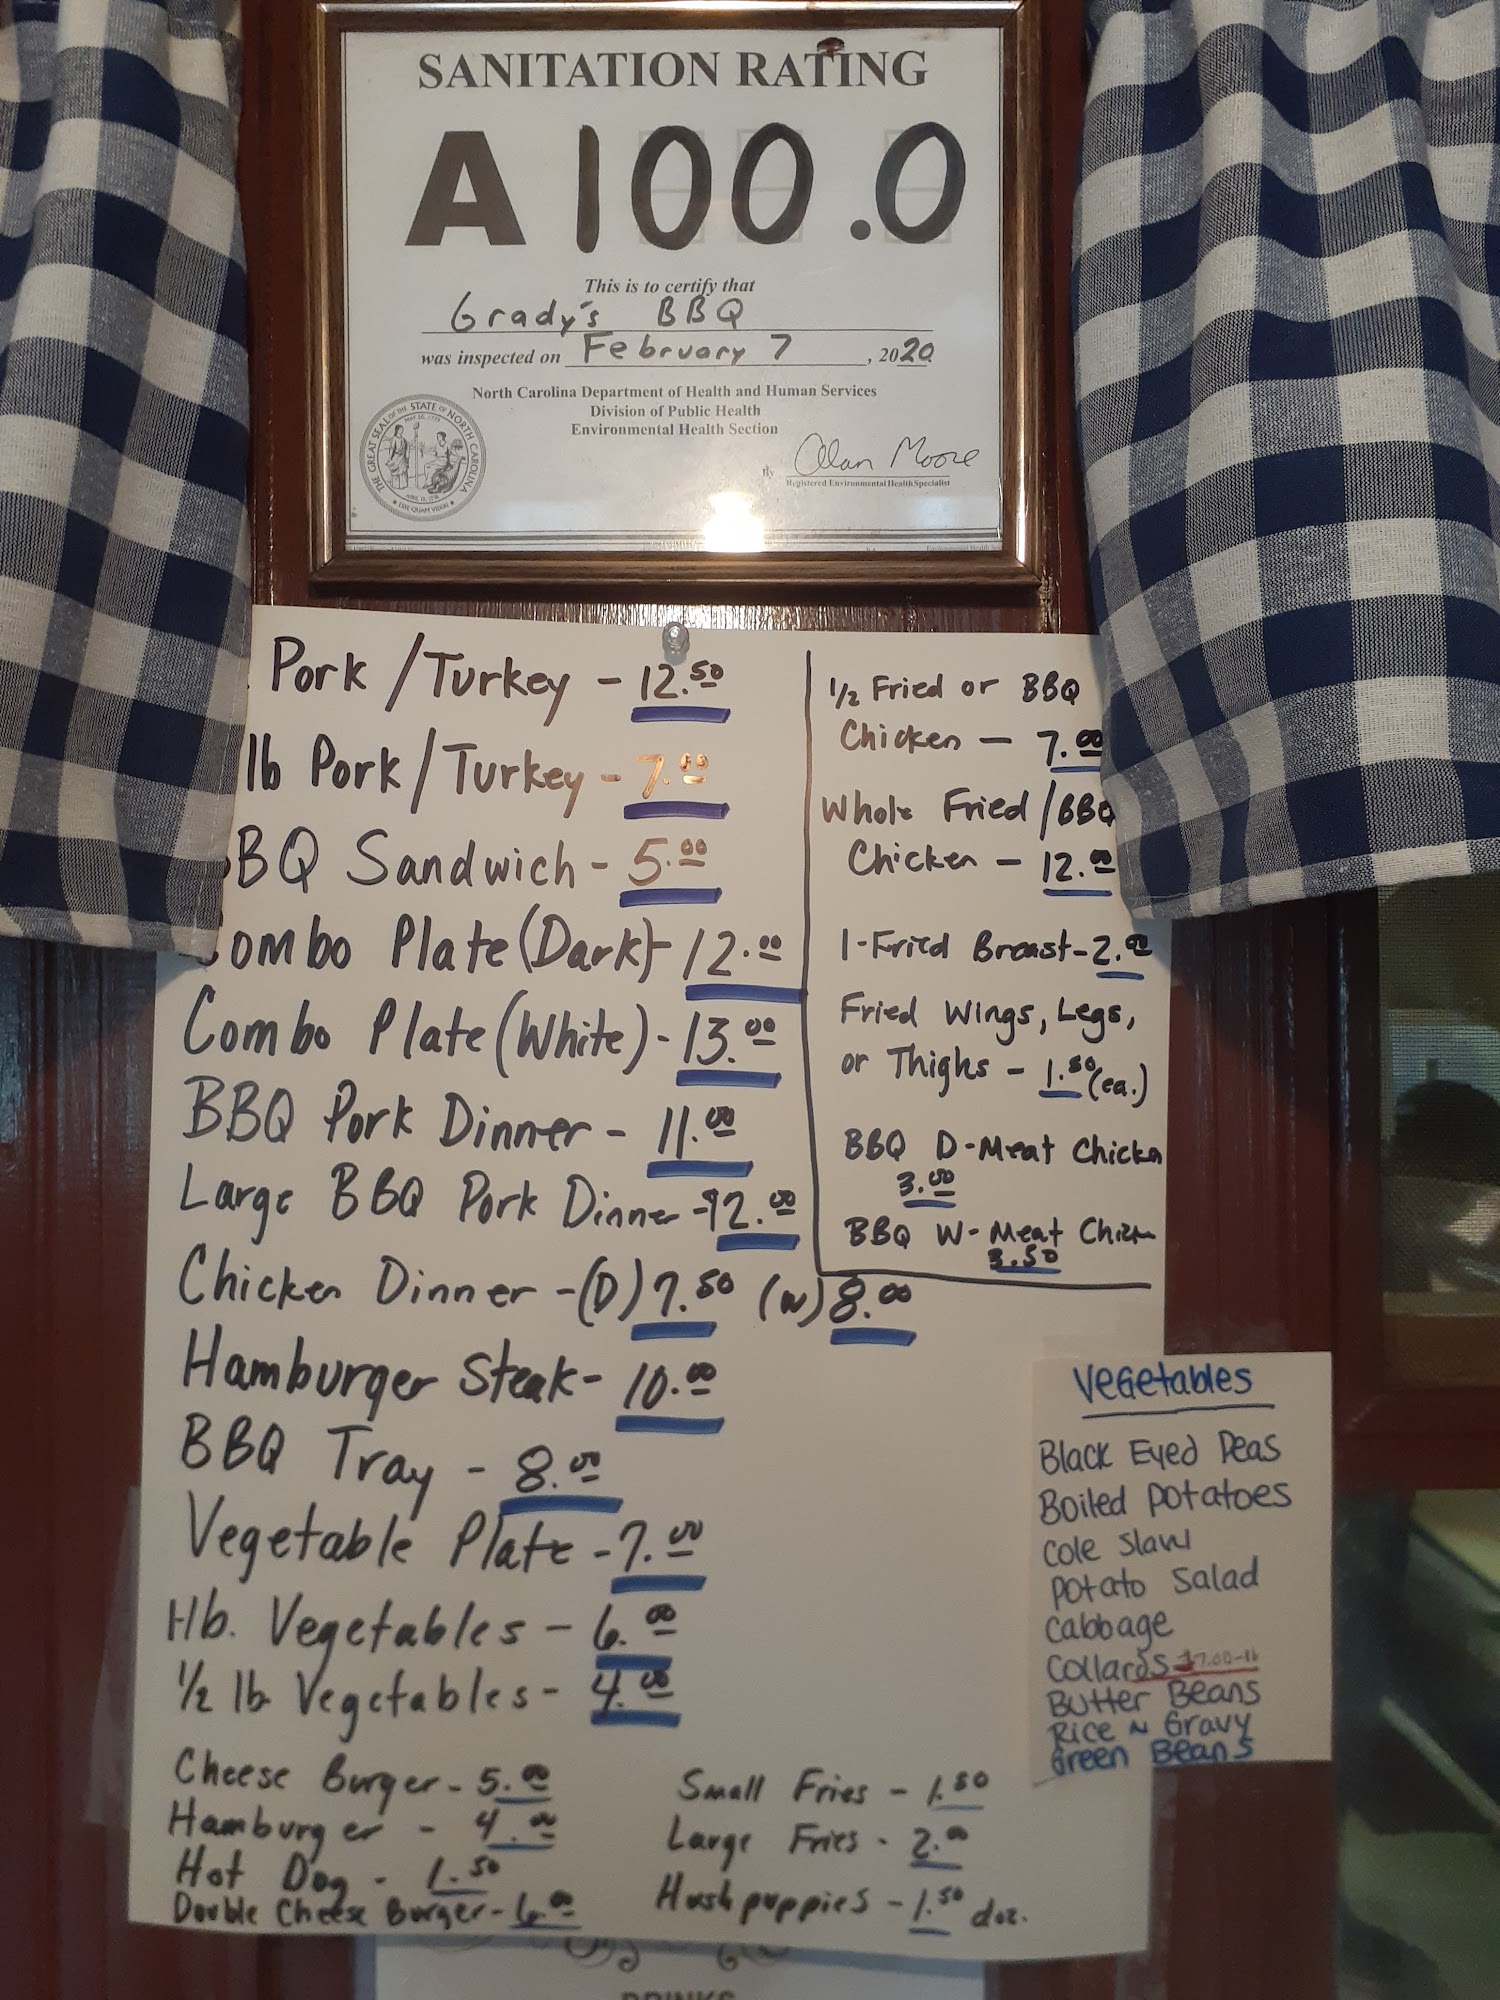 SANITATION RATING
A 100.0
This is to certify that
Grady's BBQ
was inspected on February 7, 2020
North Carolina Department of Health and Human Services
Division of Public Health
Environmental Health Section
THE GREAT SEAL OF THE STATE OF NORTH CAROLINA
ESSE QUAM VIDERI
By Alan Moore
Registered Environmental Health Specialist
Pork/Turkey - 12.50
lb Pork/Turkey - 7.00
BQ Sandwich - 5.00
ombo Plate (Dark) - 12.00
Combo Plate (White) - 13.00
BBQ Pork Dinner - 11.00
Large BBQ Pork Dinner - 12.00
Chicken Dinner - (D) 7.50 (W) 8.00
Hamburger Steak - 10.00
BBQ Tray - 8.00
Vegetable Plate - 7.00
1 lb. Vegetables - 6.00
1/2 lb Vegetables - 4.00
Cheese Burger - 5.00
Hamburger - 4.00
Hot Dog - 1.50
Double Cheese Burger - 6.00
Small Fries - 1.50
Large Fries - 2.00
Hushpuppies - 1.50 doz.
1/2 Fried or BBQ
Chicken - 7.00
Whole Fried/BBQ
Chicken - 12.00
1-Fried Breast - 2.00
Fried Wings, Legs,
or Thighs - 1.50 (ea.)
BBQ D-Meat Chicken
3.00
BBQ W-Meat Chicken
3.50
Vegetables
Black Eyed Peas
Boiled Potatoes
Cole Slaw
Potato Salad
Cabbage
Collards $7.00-lb
Butter Beans
Rice N Gravy
Green Beans
DRINKS